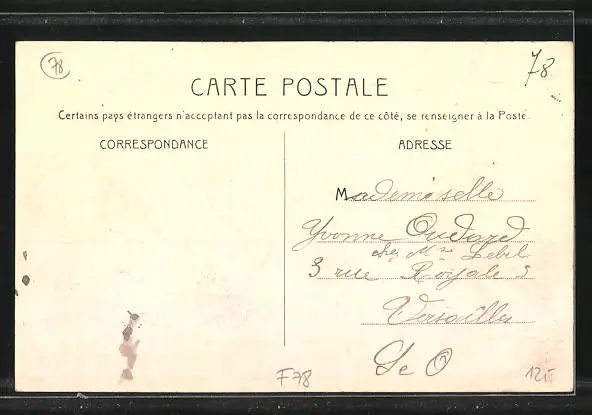 78
78
CARTE POSTALE
Certains pays étrangers n'acceptant pas la correspondance de ce côté, se renseigner à la Poste.
CORRESPONDANCE
ADRESSE
Mademoiselle
Yvonne Oudard
chez Mme Lebel
3 rue Royale 3
Versailles
S e O
F78
12F